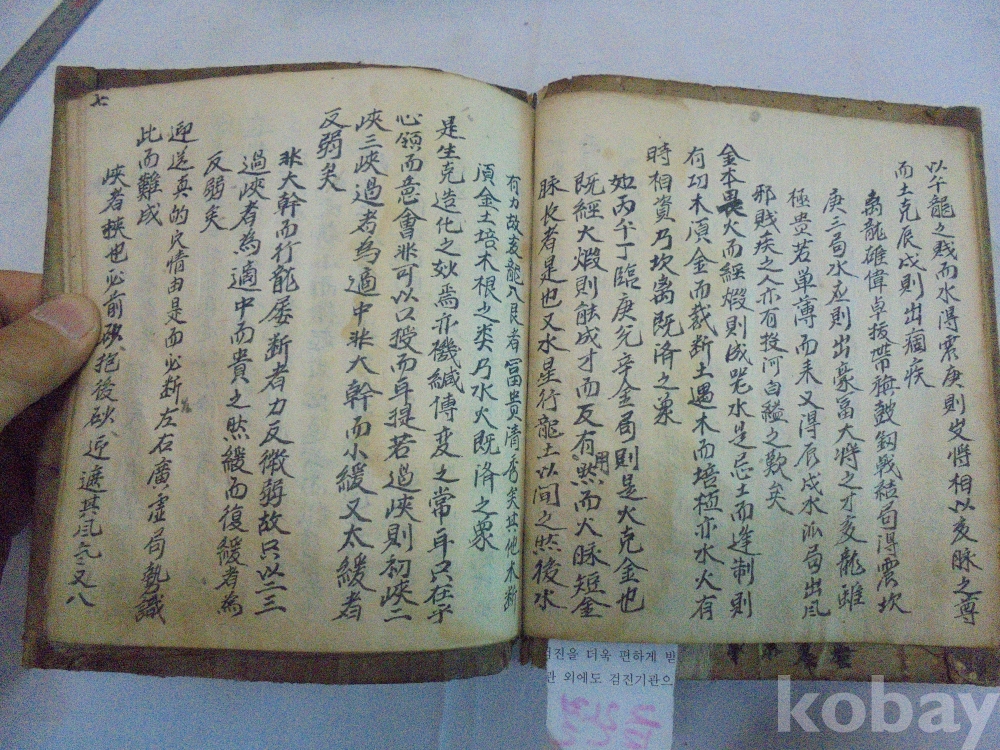 以午龍之賤而水得震庚則文將相以亥脉之尊
而土克辰戌則出痼疾
离龍雄偉卓拔帶旗皷釼戟結局得震坎
庚三局水應則出豪富大將之才亥龍雖
極貴若單薄而來又得辰戌水派局出風
邪賤疾之人亦有投河自縊之歎矣
金本畏火而經煅則成咣水是忌土而逢制則
有功木須金而裁断土遇木而培植亦水火有
時相資乃坎离既済之象
如丙午丁臨庚兌辛金局則是火克金也
既經火煅則能成才而反有用然而火脉短金
脉長者是也又水星行龍土以间之然後水
有力故亥龍入艮者富贵清秀矣其他木断
須金土培木根之类乃水火既済之象
是生克造化之妙焉亦磯緘傳变之常耳只在乎
心領而意會非可以授而耳提若過峽則初峽二
峽三峽過者為適中非大幹而小緩又太緩者
反弱矣
非大幹而行龍屡断者力反微弱故只以二三
過峽者為適中而貴之然緩而復緩者為
反弱矣
迎送真的穴情由是而必断左右廣虚局勢識
此而難成
峽者狹也必前砂抱後砂近遮其風气又八
七
검진을 더욱 편하게 받
관 외에도 검진기관으
kobay